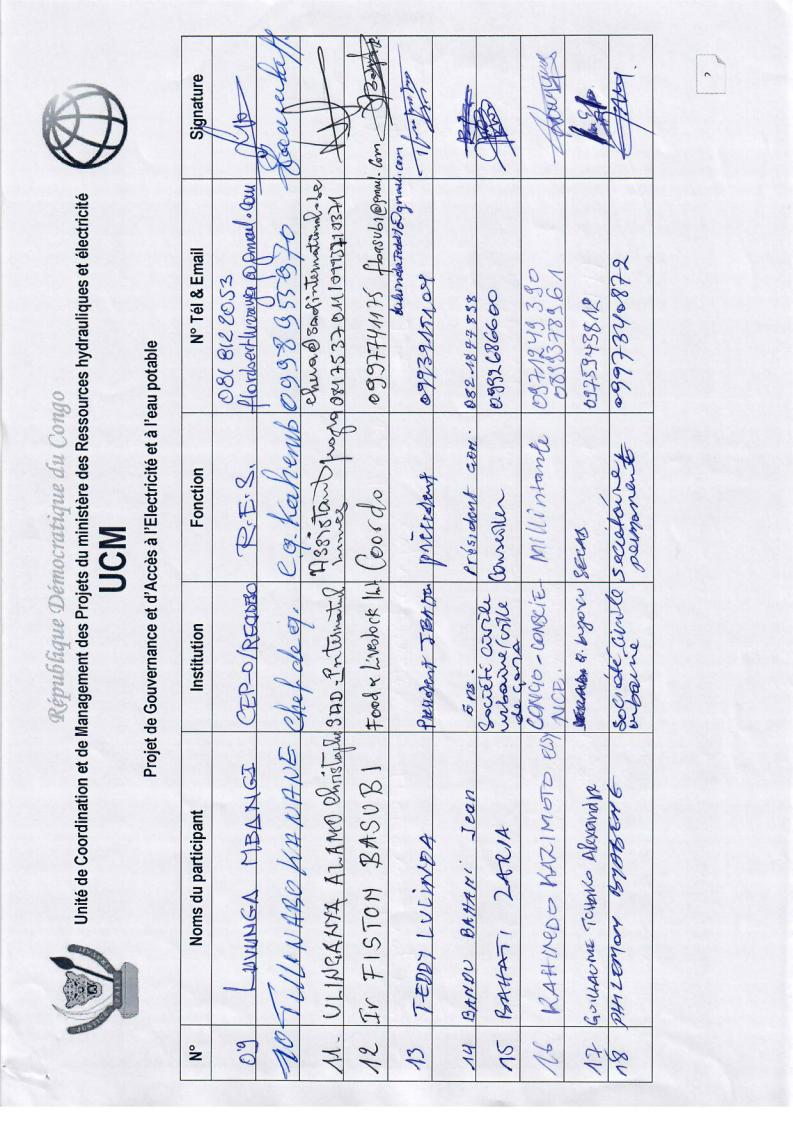 République Démocratique du Congo
Unité de Coordination et de Management des Projets du ministère des Ressources hydrauliques et électricité
UCM
Projet de Gouvernance et d'Accès à l'Electricité et à l'eau potable
N° Noms du participant Institution Fonction N° Tél & Email Signature
09 LUVUNGA MBANGI CEP-O/REGIDESO R.E.S. 081 812 2053
10 Chef de q. C.q Kahembe 0998955970
11- ULINGANYA ALAMO Christophe SAD International Assistant programmes 0817537011/0993710371
12 Ir FISTON BASUBI Food & Livestock Coordo 0997741175 fionsub1@gmail.com
13 TEDDY LULINDA President président 0993215109
14 BANDU BAHATI Jean Ens. Président 082 1897838
15 BAHATI ZARIA Société civile urbaine/ville de goma Conseiller 0992686600
16 KAHINDO KARIMOTO CONGO-CONSCIENCE Millintante 0971249390
0899378961
17 GUILLAUME TCHAKO Alexandre 0975543812
18 PHILEMON BYABENE Société civile urbaine Secrétaire permanente 0997340872